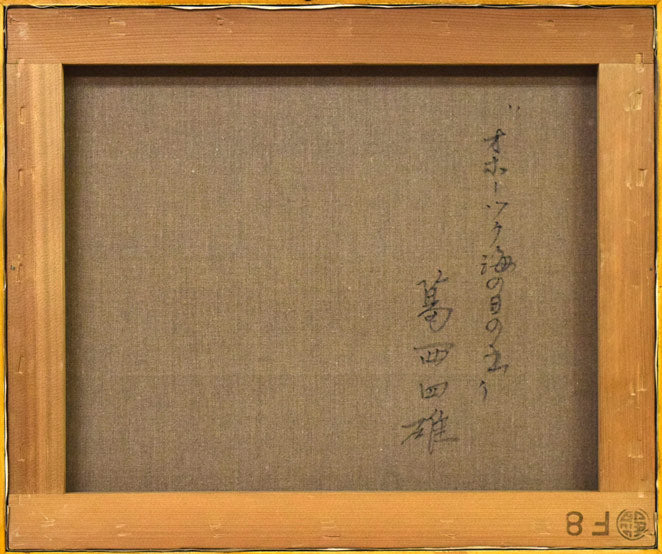 "オホーツク海の日の出"
葛西四雄
F8